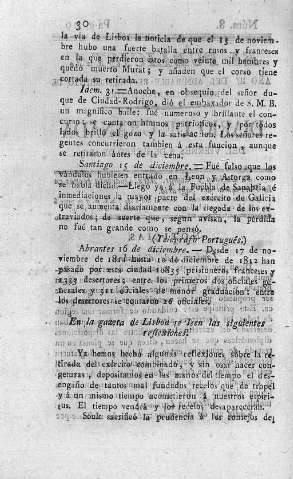 30
la via de Lisboa la noticia de que el 13 de noviem-
bre hubo una fuerte batalla entre rusos y franceses
en la que perdieron estos como veinte mil hombres y
quedó muerto Murat; y añaden que el corso tiene
cortada su retirada.
Idem. 31.—Anoche, en obsequio del señor du-
que de Ciudad-Rodrigo, dió el embaxador de S. M. B.
un magnífico baile: fué numeroso y brillante el con-
curso: se cantaron himnos patrióticos, y por todos
lados brilló el gozo y la satisfaccion. Los señores re-
gentes concurrieron tambien á esta funcion, aunque
se retiraron ántes de la cena.
Santiago 15 de diciembre.—Fué falso que los
vándalos hubiesen entrado en Leon y Astorga como
se habia dicho.—Llegó ya á la Puebla de Sanabria é
inmediaciones la mayor parte del exército de Galicia
que se aumenta diariamente con la llegada de los ex-
traviados; de suerte que, segun avisan, la pérdida
no fué tan grande como se pensó.
(Telégrafo Portugués.)
Abrantes 16 de diciembre.—Desde 17 de no-
viembre de 1811 hasta 10 de diciembre de 1812 han
pasado por esta ciudad 10835 prisioneros franceses y
desertores: entre los primeros dos oficiales ge-
nerales y 311 oficiales de menor graduacion: entre
los desertores se contaron 16 oficiales.
En la gazeta de Lisboa se leen las siguientes
reflexiones.
Ya hemos hecho algunas reflexiones sobre la re-
tirada del exército combinado, y sin osar hacer con-
geturas, depositamos en las manos del tiempo el des-
engaño de tantos mal fundados recelos que de tropel
y á un mismo tiempo acometieron á nuestros espíri-
tus. El tiempo vendrá y los recelos desaparecerán.
Soult sacrificó la prudencia á los consejos de